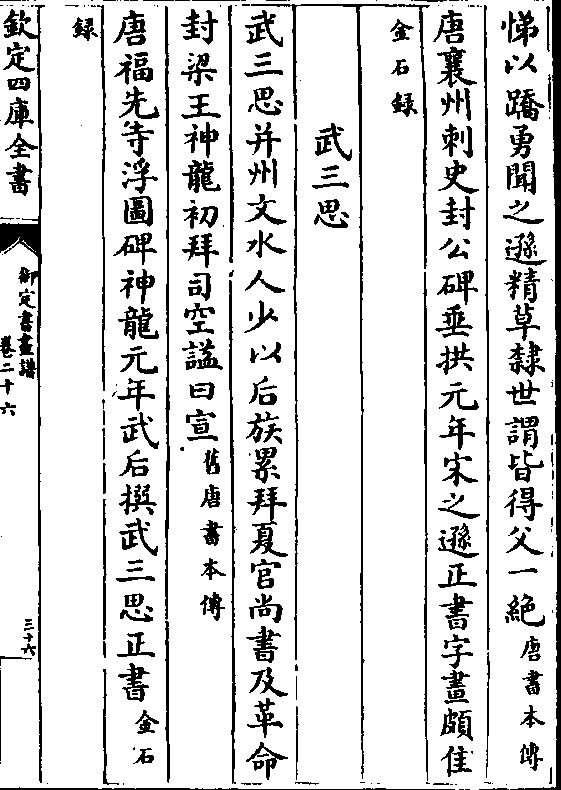 悌以蹻勇聞之遜精草隸世謂皆得父一絶唐書本傳
唐襄州刺史封公碑垂拱元年宋之遜正書字畫頗佳
金石録
武三思
武三思并州文水人少以后族累拜夏官尚書及革命
封梁王神龍初拜司空謚曰宣舊唐書本傳
唐福先寺浮圖碑神龍元年武后撰武三思正書金石
録
欽定四庫全書
御定書畫譜
卷二十六
三十六